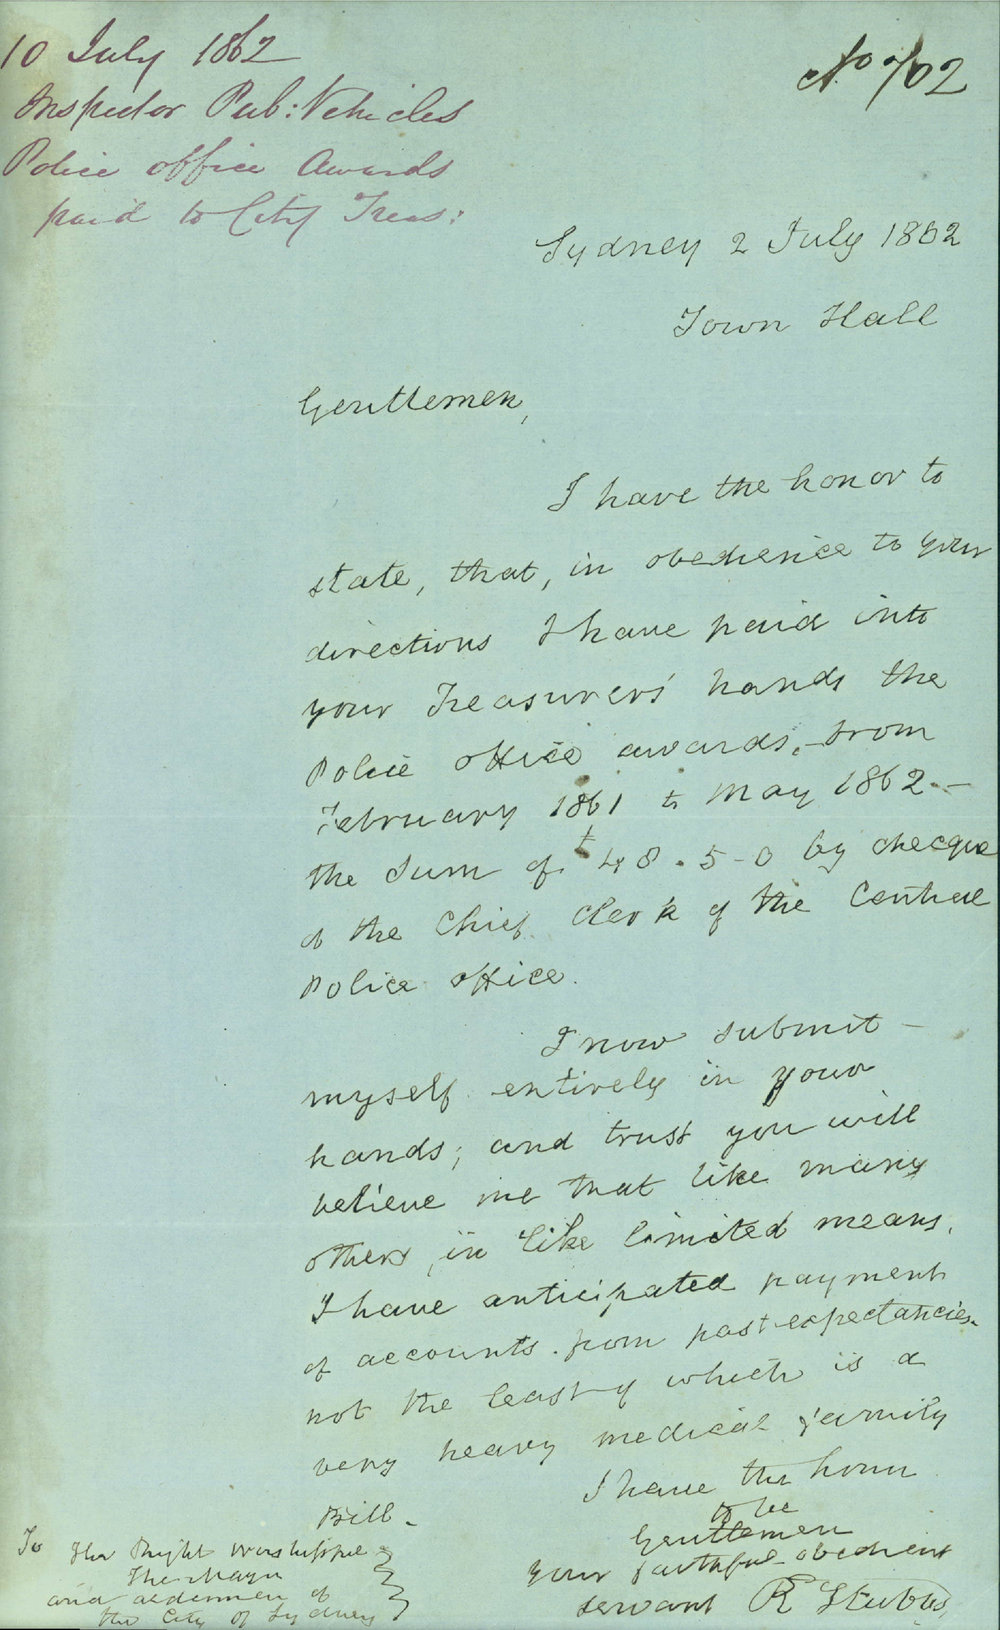 10 July 1862
Inspector Pub: Vehicles
Police office Awards
paid to City Treas:
No 702
Sydney 2 July 1862
Town Hall
Gentlemen,
I have the honor to
state, that, in obedience to your
directions I have paid into
your Treasurers' hands the
Police office awards, from
February 1861 to May 1862 -
the sum of £48.5-0 by checque
of the Chief Clerk of the Central
Police office.
I now submit -
myself entirely in your
hands; and trust you will
believe me that like many
others, in like limited means,
I have anticipated payment
of accounts from past expectancies-
not the least of which is a
very heavy medical family
Bill -
I have the honor
to be
Gentlemen
your faithful obedient
servant R Stubbs,
To The Right Worshipful
The Mayor
and aldermen of
the City of Sydney